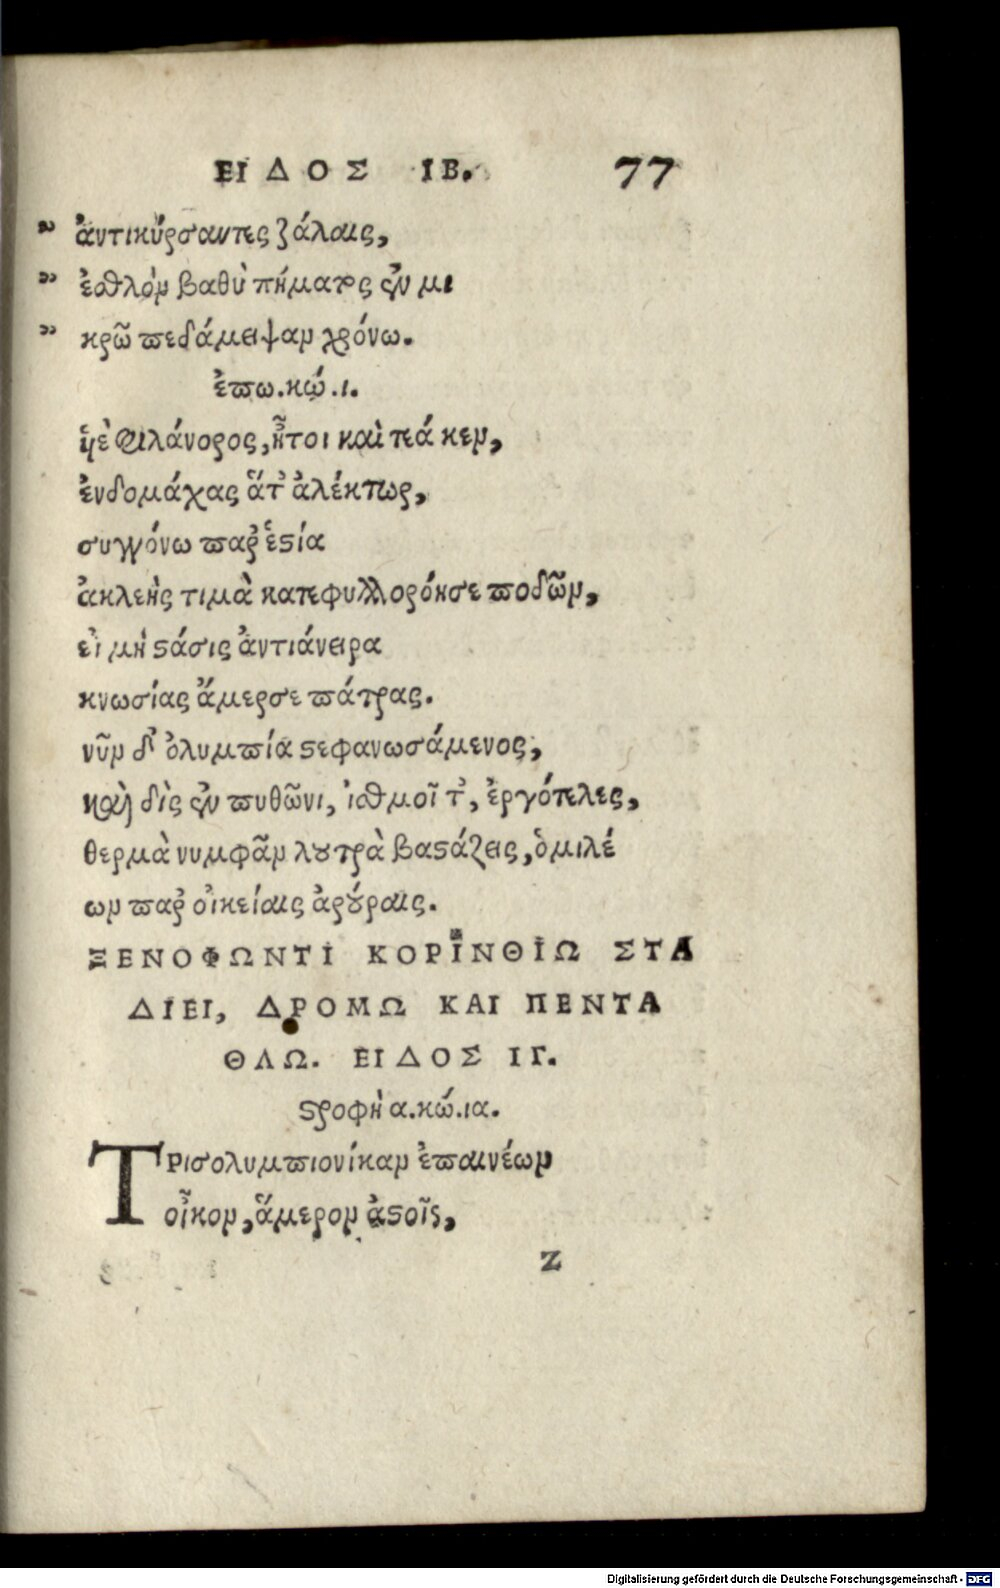 ΕΙΔΟΣ ΙΒ. 77
„ ἀντικύρσαντες ζάλαις,
„ ἐσθλὸν βαθὺ πήματος ἐν μι
„ κρῶ πεδάμειψαν χρόνω.
ἐπω.κώ.ι.
ὑὲ Φιλάνορος, ἤτοι καὶ τεά κεν,
ἐνδομάχας ἅτ' ἀλέκτωρ,
συγγόνω παρ' ἑστία
ἀκλεὴς τιμὰ κατεφυλλορόησε ποδῶν,
εἰ μὴ στάσις ἀντιάνειρα
κνωσίας ἄμερσε πάτρας.
νῦν δ' ὀλυμπία στεφανωσάμενος,
καὶ δὶς ἐν πυθῶνι, ἰσθμοῖ τ', ἐργότελες,
θερμὰ νυμφᾶν λουτρὰ βαστάζεις, ὁμιλέ
ων παρ' οἰκείαις ἀρούραις.
ΞΕΝΟΦΩΝΤΙ ΚΟΡΙΝΘΙΩ ΣΤΑ
ΔΙΕΙ, ΔΡΟΜΩ ΚΑΙ ΠΕΝΤΑ
ΘΛΩ. ΕΙΔΟΣ ΙΓ.
στροφὴ α.κώ.ια.
Τρισολυμπιονίκαν ἐπαινέων
οἶκον, ἅμερον ἀστοῖς,
Z
Digitalisierung gefördert durch die Deutsche Forschungsgemeinschaft - DFG